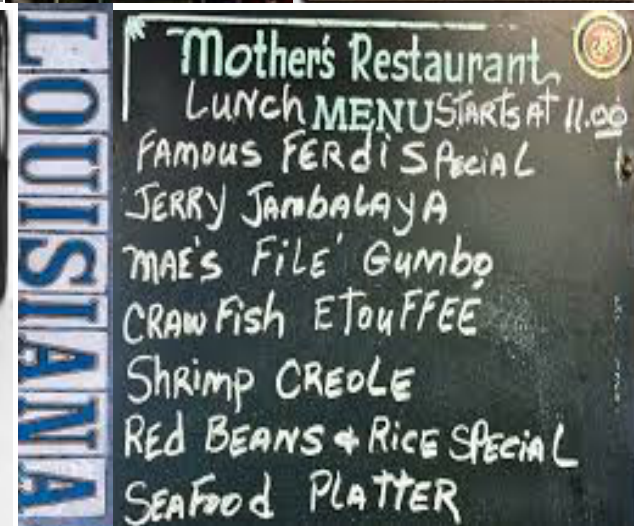 LOUISIANA
Mother's Restaurant
LUNCH MENU STARTS AT 11.00
FAMOUS FERdi SPECiAL
JERRY JAMBALAYA
MAE'S FiLE' Gumbo
CRAWFish ETouFFEÉ
ShRimp CREOLE
REd BEANS & RiCE SPECiAL
SEAFood PLATTER